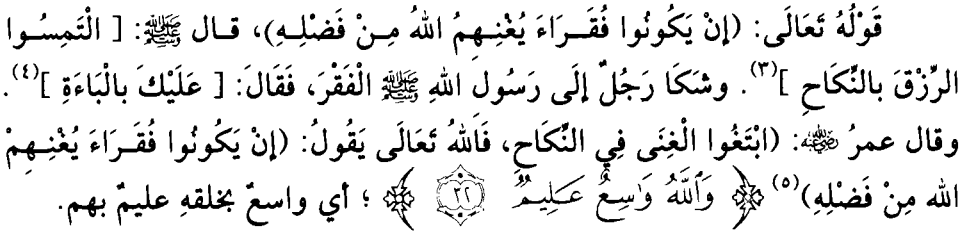 قَوْلُهُ تَعَالَى: (إِنْ يَكُونُوا فُقَـرَاءَ يُغْنِـهِمُ اللهُ مِـنْ فَضْلِـهِ)، قـال ﷺ: [ الْتَمِسُـوا
الرِّزْقَ بالنِّكَاحِ ]⁽٣⁾. وشَكَا رَجُلٌ إلَى رَسُولِ اللهِ ﷺ الْفَقْرَ، فَقَالَ: [ عَلَيْكَ بالْبَاءَةِ ]⁽٤⁾.
وقال عمرُ ﵁: (ابْتَغُوا الْغِنَى فِي النِّكَاحِ، فَاللهُ تَعَالَى يَقُولُ: (إِنْ يَكُونُوا فُقَـرَاءَ يُغْنِـهِمْ
الله مِنْ فَضْلِهِ)⁽٥⁾ ﴿ وَٱللَّهُ وَٰسِعٌ عَـلِيمٌ ٣٢ ﴾ ؛ أي واسعٌ بخلقهِ عليمٌ بهم.